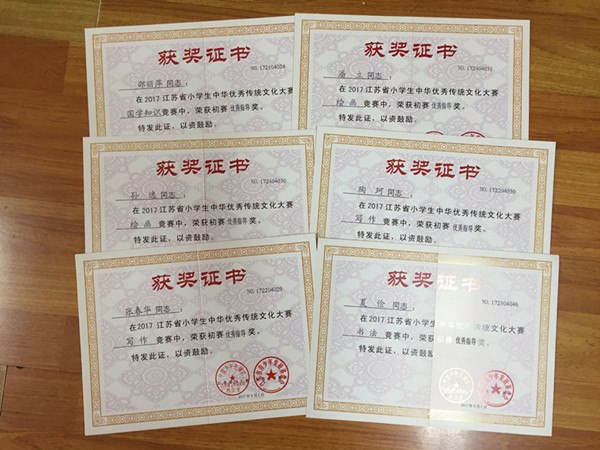 获奖证书
NO. 172104024
邵丽萍 同志：
在2017江苏省小学生中华优秀传统文化大赛
国学知识 竞赛中，荣获初赛 优秀指导 奖。
特发此证，以资鼓励。
获奖证书
NO. 172404031
潘 立 同志：
在2017江苏省小学生中华优秀传统文化大赛
绘画 竞赛中，荣获初赛 优秀指导 奖。
特发此证，以资鼓励。
获奖证书
NO. 172404030
孙 逸 同志：
在2017江苏省小学生中华优秀传统文化大赛
绘画 竞赛中，荣获初赛 优秀指导 奖。
特发此证，以资鼓励。
获奖证书
NO. 172204030
陶 珂 同志：
在2017江苏省小学生中华优秀传统文化大赛
写作 竞赛中，荣获初赛 优秀指导 奖。
特发此证，以资鼓励。
获奖证书
NO. 172204029
张春华 同志：
在2017江苏省小学生中华优秀传统文化大赛
写作 竞赛中，荣获初赛 优秀指导 奖。
特发此证，以资鼓励。
获奖证书
NO. 172304046
夏 俭 同志：
在2017江苏省小学生中华优秀传统文化大赛
书法 竞赛中，荣获初赛 优秀指导 奖。
特发此证，以资鼓励。